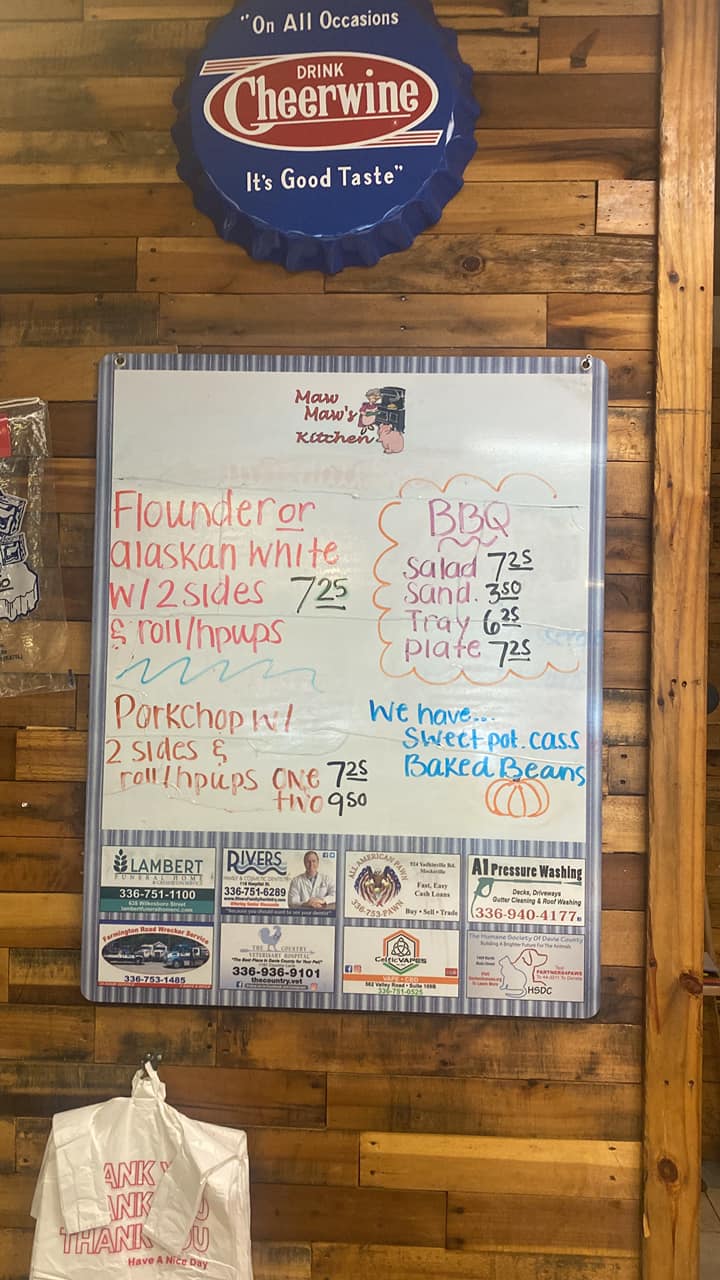 "On All Occasions
DRINK
Cheerwine
It's Good Taste"
Maw
Maw's
Kitchen
Flounder or
alaskan white
w/ 2 sides 7.25
& roll/hpups
Porkchop w/
2 sides &
roll/hpups one 7.25
two 9.50
BBQ
Salad 7.25
Sand. 3.50
Tray 6.25
plate 7.25
We have...
Sweet pot. cass
Baked Beans
LAMBERT
FUNERAL HOME
336-751-1100
RIVERS
336-751-6289
ALL AMERICAN PAWN
336-753-PAWN
Mocksville
Fast, Easy
Cash Loans
Buy • Sell • Trade
A1 Pressure Washing
Decks, Driveways
Gutter Cleaning & Roof Washing
336-940-4177
Farmington Road Wrecker Service
336-753-1485
THE COUNTRY
VETERINARY HOSPITAL
336-936-9101
thecountry.vet
CelticVAPES
VAPE • CBD
336-751-0525
The Humane Society Of Davie County
Building A Brighter Future For The Animals
HSDC
ANK
ANK
THANK YOU
Have A Nice Day